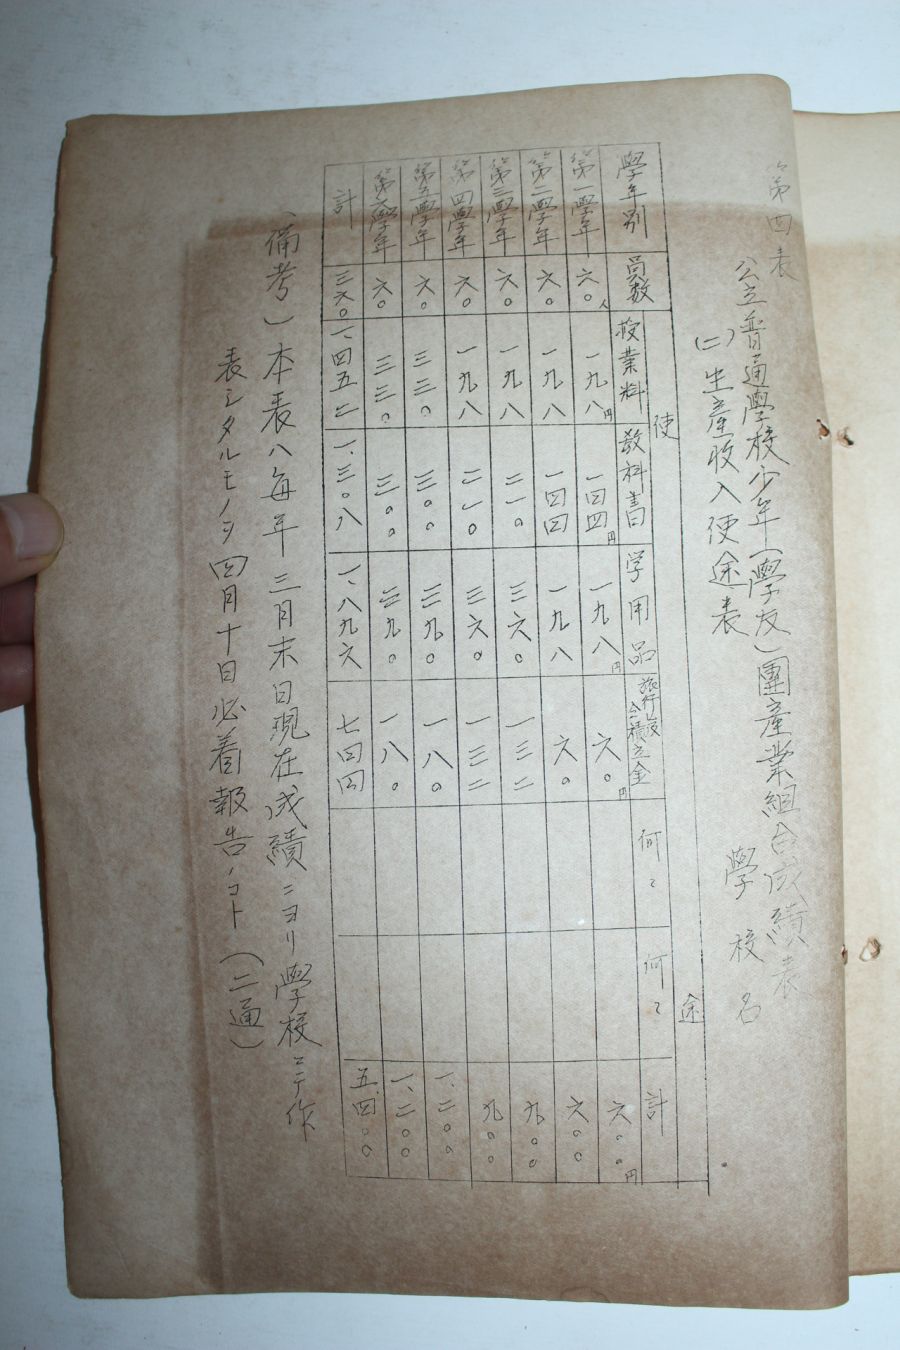 第四表
公立普通學校少年(學友)團產業組合成績表
(二)生產收入使途表
學校名
學年別 員數 使途
授業料 敎科書 学用品 旅行及 積立金 何々 何々 計
第一學年 六〇人 一九八円 一四四円 一九八円 六〇円 六〇〇円
第二學年 六〇 一九八 一四四 一九八 六〇 六〇〇
第三學年 六〇 一九八 二一〇 三六〇 一三二 九〇〇
第四學年 六〇 一九八 二一〇 三六〇 一三二 九〇〇
第五學年 六〇 三三〇 三〇〇 三九〇 一八〇 一、二〇〇
第六學年 六〇 三三〇 三〇〇 三九〇 一八〇 一、二〇〇
計 三六〇 一、四五二 一、三〇八 一、八九六 七四四 五、四〇〇
(備考)本表ハ每年三月末日現在成績ニヨリ學校ニテ作
表シタルモノヲ四月十日必着報告ノコト(二通)